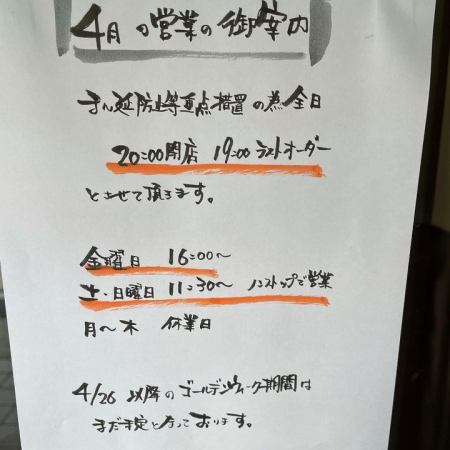 4月の営業の御案内
まん延防止等重点措置の為全日
20:00閉店 19:00ラストオーダー
とさせて頂きます。
金曜日 16:00〜
土・日曜日 11:30〜 ノンストップで営業
月〜木 休業日
4/26 以降のゴールデンウィーク期間は
まだ予定となっております。